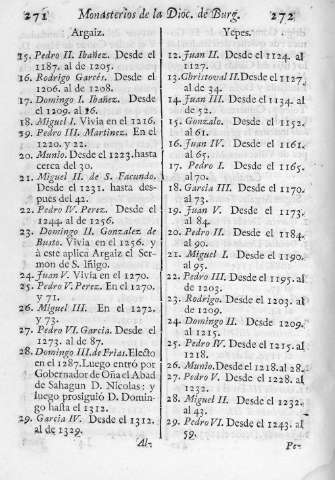 271 Monasterios de la Dioc. de Burg. 272
Argaiz.
15. Pedro II. Ibañez. Desde el
1187. al de 1205.
16. Rodrigo Garcés. Desde el
1206. al de 1208.
17. Domingo I. Ibañez. Desde
el 1209. al 16.
18. Miguel I. Vivia en el 1216.
19. Pedro III. Martinez. En el
1220. y 22.
20. Munio. Desde el 1223. hasta
cerca del 30.
21. Miguel II. de S. Facundo.
Desde el 1231. hasta des-
pues del 42.
22. Pedro IV. Perez. Desde el
1244. al de 1256.
23. Domingo II. Gonzalez de
Busto. Vivia en el 1256. y
à este aplica Argaiz el Ser-
mon de S. Iñigo.
24. Juan V. Vivia en el 1270.
25. Pedro V. Perez. En el 1270.
y 71.
26. Miguel III. En el 1272.
y 73.
27. Pedro VI. Garcia. Desde el
1273. al de 87.
28. Domingo III. de Frias. Electo
en el 1287. Luego entró por
Gobernador de Oña el Abad
de Sahagun D. Nicolas: y
luego prosiguió D. Domin-
go hasta el 1312.
29. Garcia IV. Desde el 1312.
al de 1329.
Al-
Yepes.
12. Juan II. Desde el 1124. al
1127.
13. Christoval II. Desde el 1127.
al de 34.
14. Juan III. Desde el 1134. al
de 52.
15. Gonzalo. Desde el 1152.
al 61.
16. Juan IV. Desde el 1161.
al 65.
17. Pedro I. Desde el 1165.
al 70.
18. Garcia III. Desde el 1170.
al 73.
19. Juan V. Desde el 1173.
al 84.
20. Pedro II. Desde el 1184.
al 90.
21. Miguel I. Desde el 1190.
al 95.
22. Pedro III. Desde el 1195. al
de 1203.
23. Rodrigo. Desde el 1203. al
de 1209.
24. Domingo II. Desde 1209.
al 1215.
25. Pedro IV. Desde el 1215. al
1218.
26. Munio. Desde el 1218. al 28.
27. Pedro V. Desde el 1228. al
1232.
28. Miguel II. Desde el 1232.
al 43.
29. Pedro VI. Desde el 1243. al
59.
Pe-